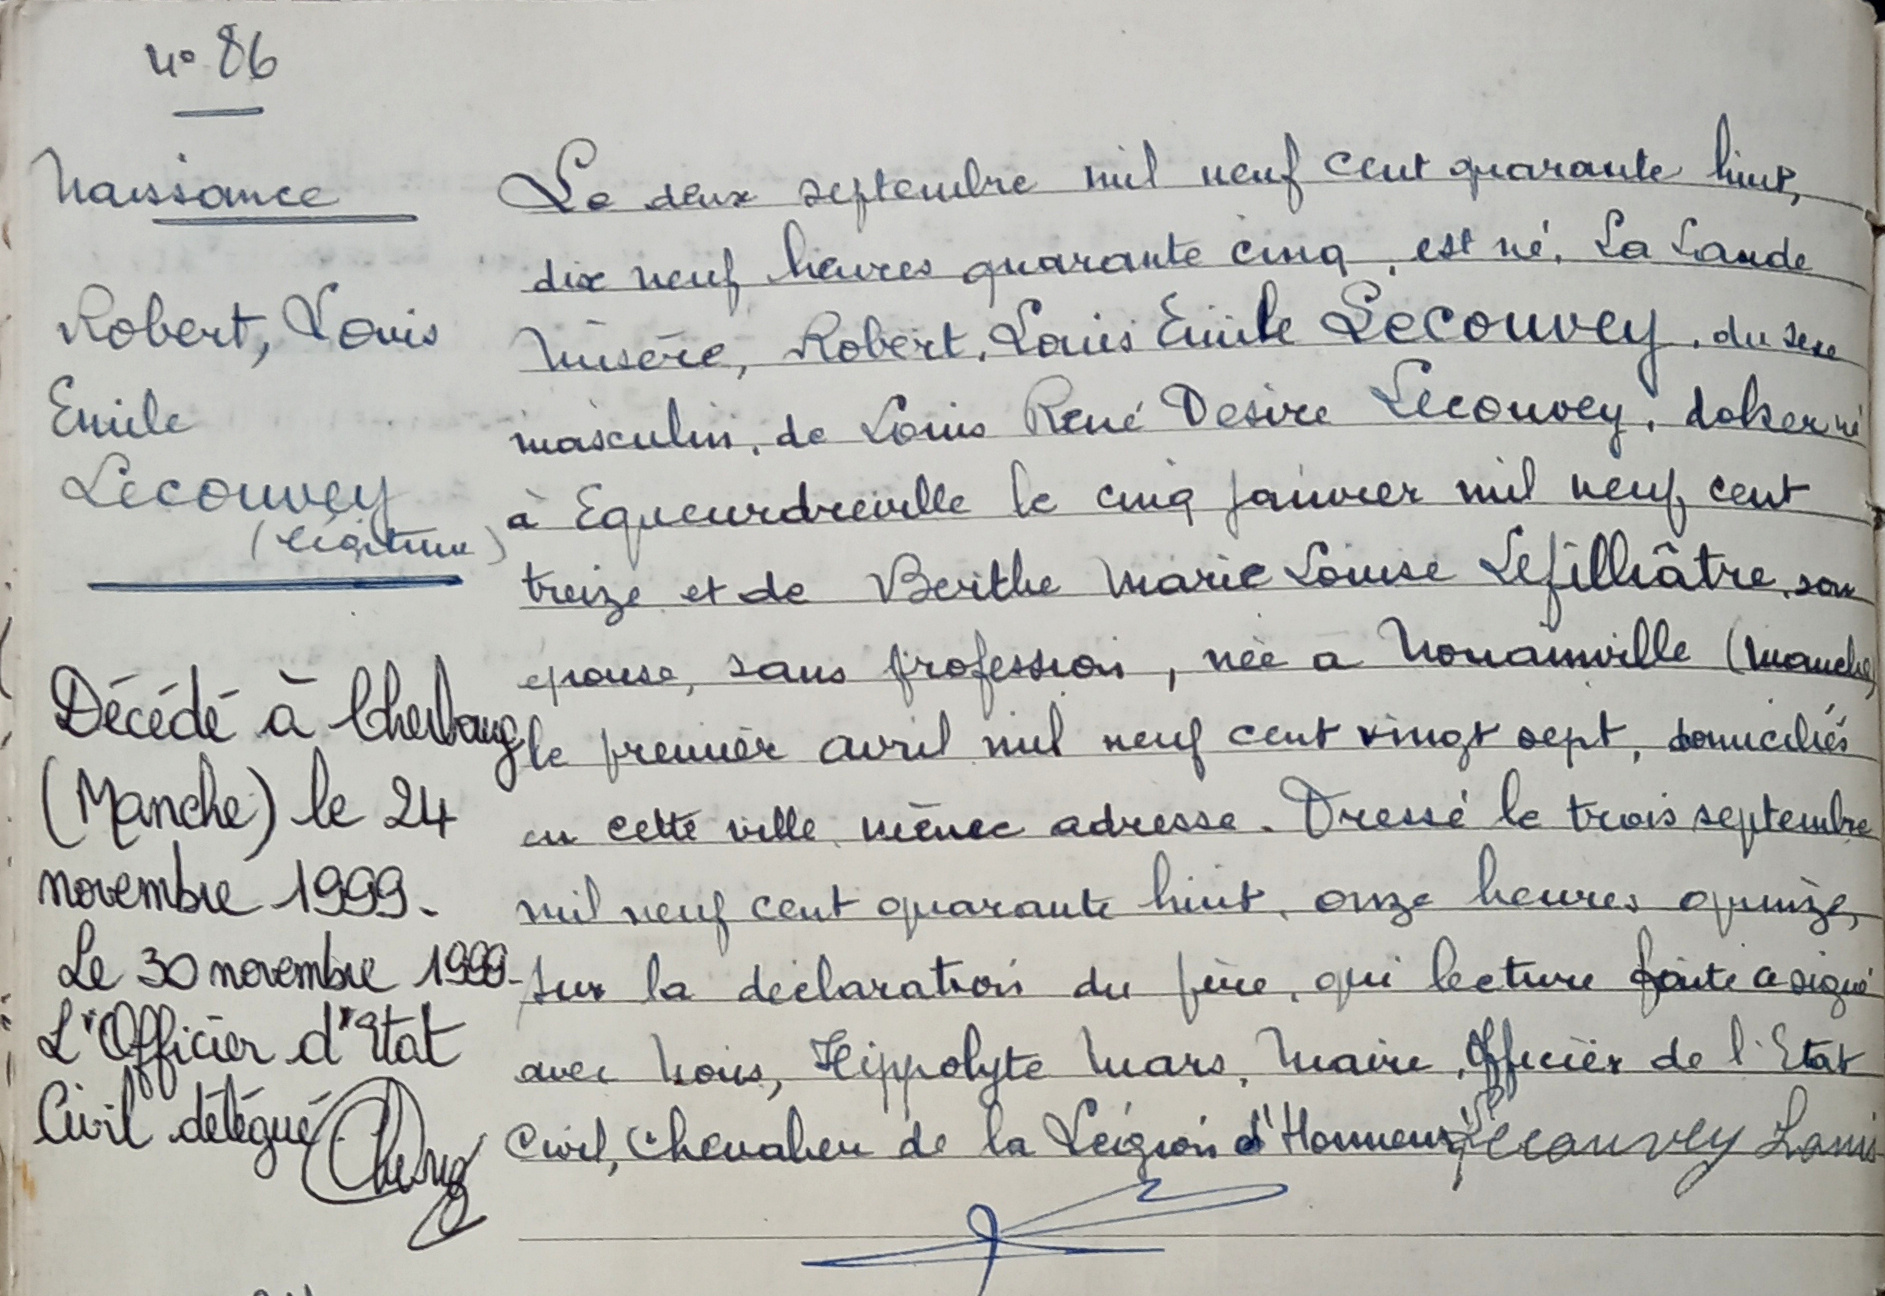 n° 86
Naissance
Robert, Louis
Emile
Lecouvey
(légitime)
Décédé à Cherbourg
(Manche) le 24
novembre 1999.
Le 30 novembre 1999.
L'Officier d'Etat
Civil délégué
Le deux septembre mil neuf cent quarante huit,
dix neuf heures quarante cinq, est né, La Lande
Misère, Robert, Louis Emile Lecouvey, du sexe
masculin, de Louis René Desire Lecouvey, doker né
à Equeurdreville le cinq janvier mil neuf cent
treize et de Berthe Marie Louise Lefilliâtre, son
epouse, sans profession, née à Nouainville (Manche)
le premier avril mil neuf cent vingt sept, domiciliés
en cette ville, même adresse. Dressé le trois septembre
mil neuf cent quarante huit, onze heures quinze,
sur la déclaration du père, qui lecture faite a signé
avec Nous, Hippolyte Mars, Maire, Officier de l'Etat
Civil, Chevalier de la Légion d'Honneur Lecouvey Louis